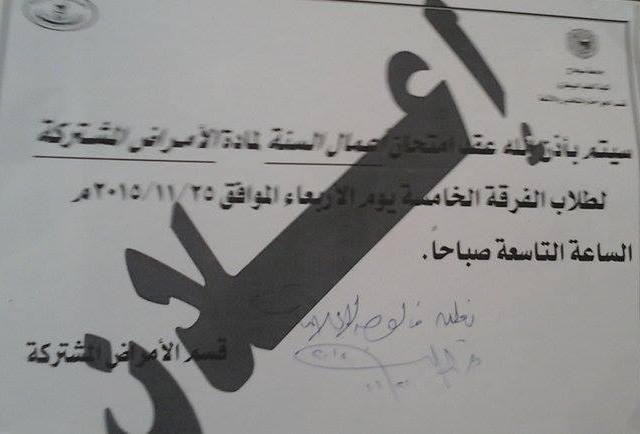 إعلان
سيتم بأذن الله عقد امتحان أعمال السنة لمادة الأمراض المشتركة
لطلاب الفرقة الخامسة يوم الاربعاء الموافق ٢٠١٥/١١/٢٥م
الساعة التاسعة صباحاً.
قسم الأمراض المشتركة